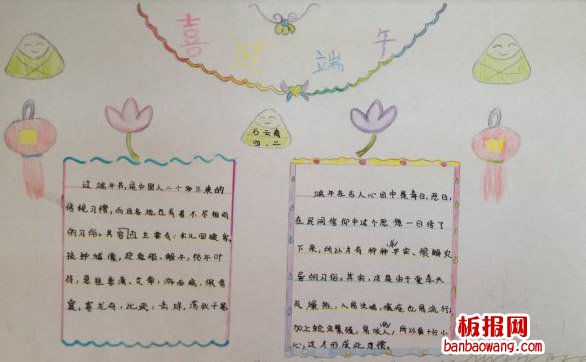 喜迎端午
四、二
过端午节，是中国人二千多年来的
传统习惯，而且各地也有着不尽相同
的习俗。其内容主要有：女儿回娘家，
挂钟馗像，迎鬼船、躲午，帖午叶
符，悬挂菖蒲、艾草，游百病，佩香
囊，赛龙舟，比武，击球，荡秋千等
端午在古人心目中是毒日、恶日，
在民间信仰中这个思想一日传了
下来，所以才有种种求平安、禳解灾
异的习俗。其实，这是由于夏季天
气燥热，人易生病，瘟疫也易流行；
加上蛇虫繁殖，易咬伤人，所以要十分小
心，这才形成此习惯。
板报网
banbaowang.com